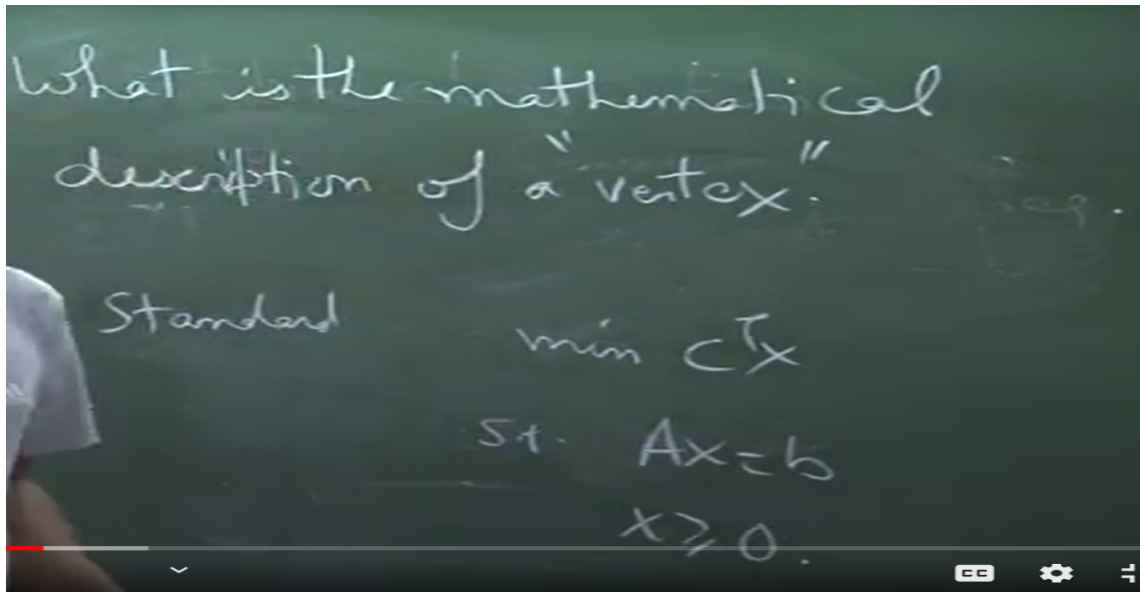 What is the mathematical
description of a "vertex".
Standard
min CᵀX
S.t. Ax=b
x⩾0.
CC